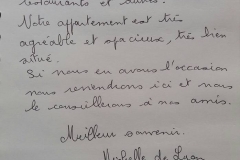 restaurants et autres.
Notre appartement est très
agréable et spacieux, très bien
situé.
Si nous en avons l'occasion
nous reviendrons ici et nous
le conseillerons à nos amis.
Meilleur souvenir.
de Lyon